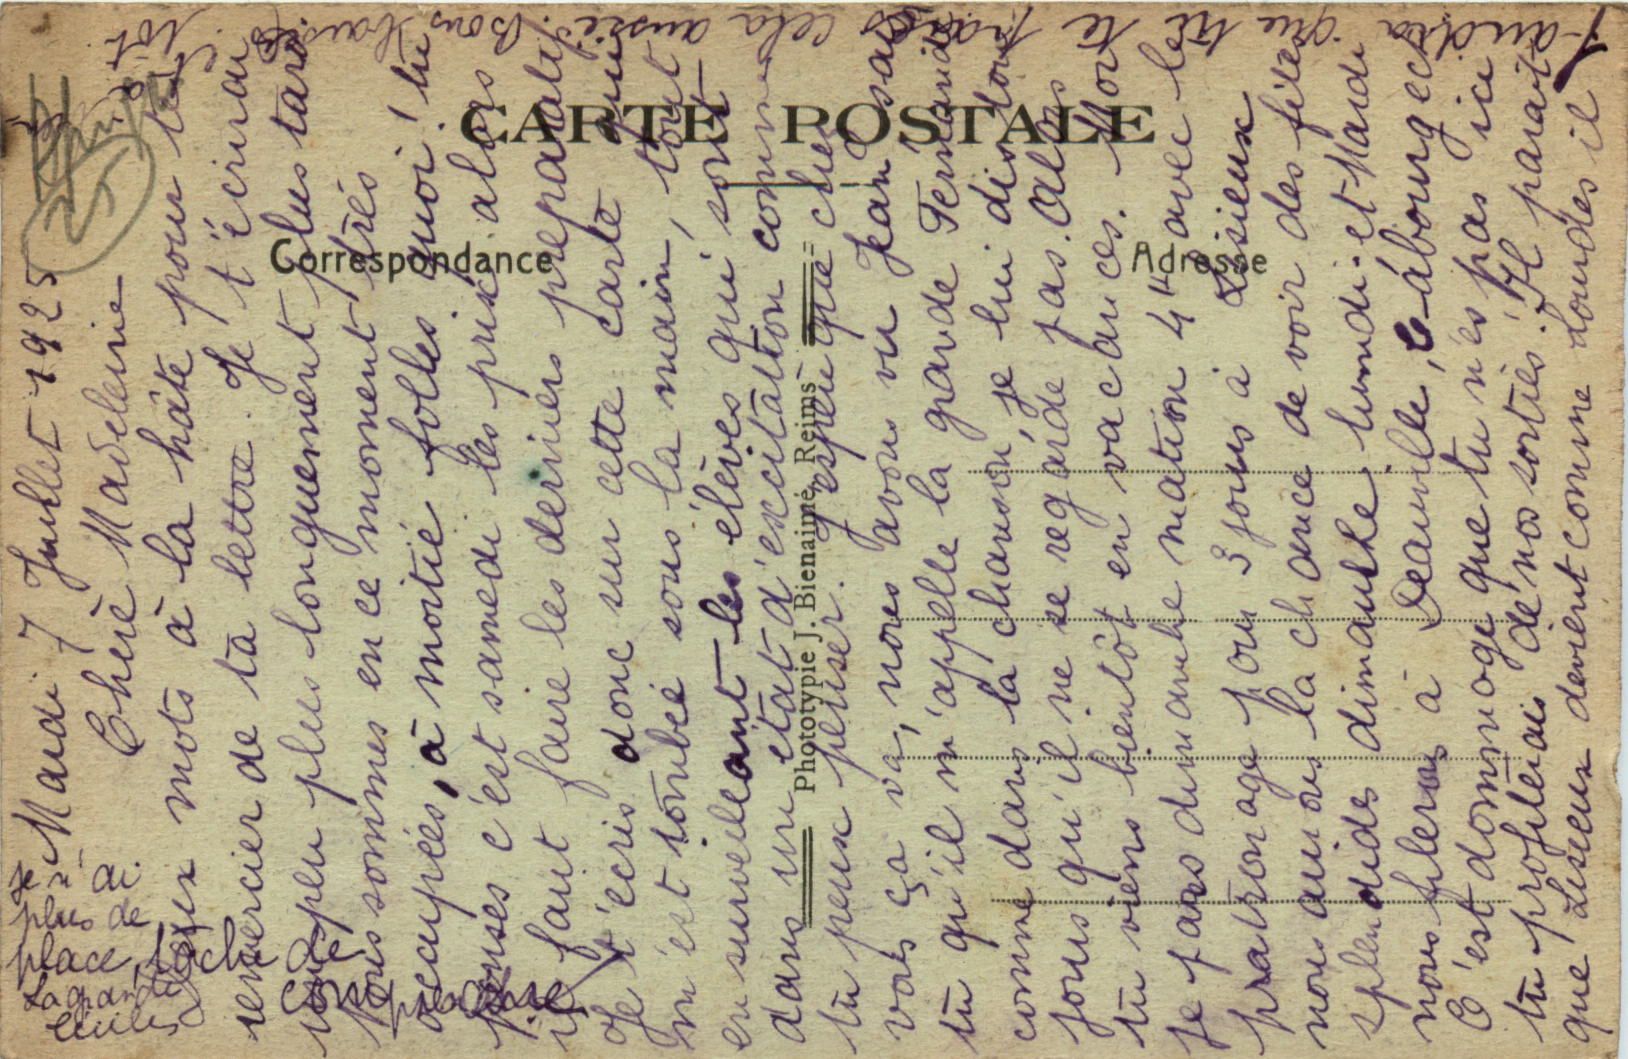 CARTE POSTALE
Correspondance
Adresse
Phototypie J. Bienaimé, Reims
Mardi 7 Juillet 1925
Chère Madeleine
deux mots à la hâte pour te
remercier de ta lettre. Je t'écrirai
un peu plus longuement plus tard
nous sommes en ce moment très
occupées, à moitié folles quoi! tu
penses c'est samedi les prix alors
il faut faire les derniers préparatifs
Je t'écris donc sur cette carte qui
m'est tombée sous la main, tout
en surveillant les élèves qui sont
dans un état d'excitation comme
tu peux penser. J'espère que chez
vous ça va, nous avons vu Jean sais
tu qu'il m'appelle la grande Fernande
comme dans la chanson, je lui dis tou
jours qu'il ne se regarde pas. Alors
tu viens bientôt en vacances. Moi
je pars dimanche matin 4 H avec le
patronage pour 3 jours à Lisieux
nous aurons la chance de voir des fêtes
splendides dimanche, lundi et Mardi
nous filerons à Deauville, Cabourg ect
C'est dommage que tu n'es pas ici
tu profiterais de nos sorties. Il parait
que Lisieux devient comme Lourdes il
faudra que tu te paies cela aussi. Bons baisers
à
tôt
je n'ai
plus de
place, tâche de
La grande